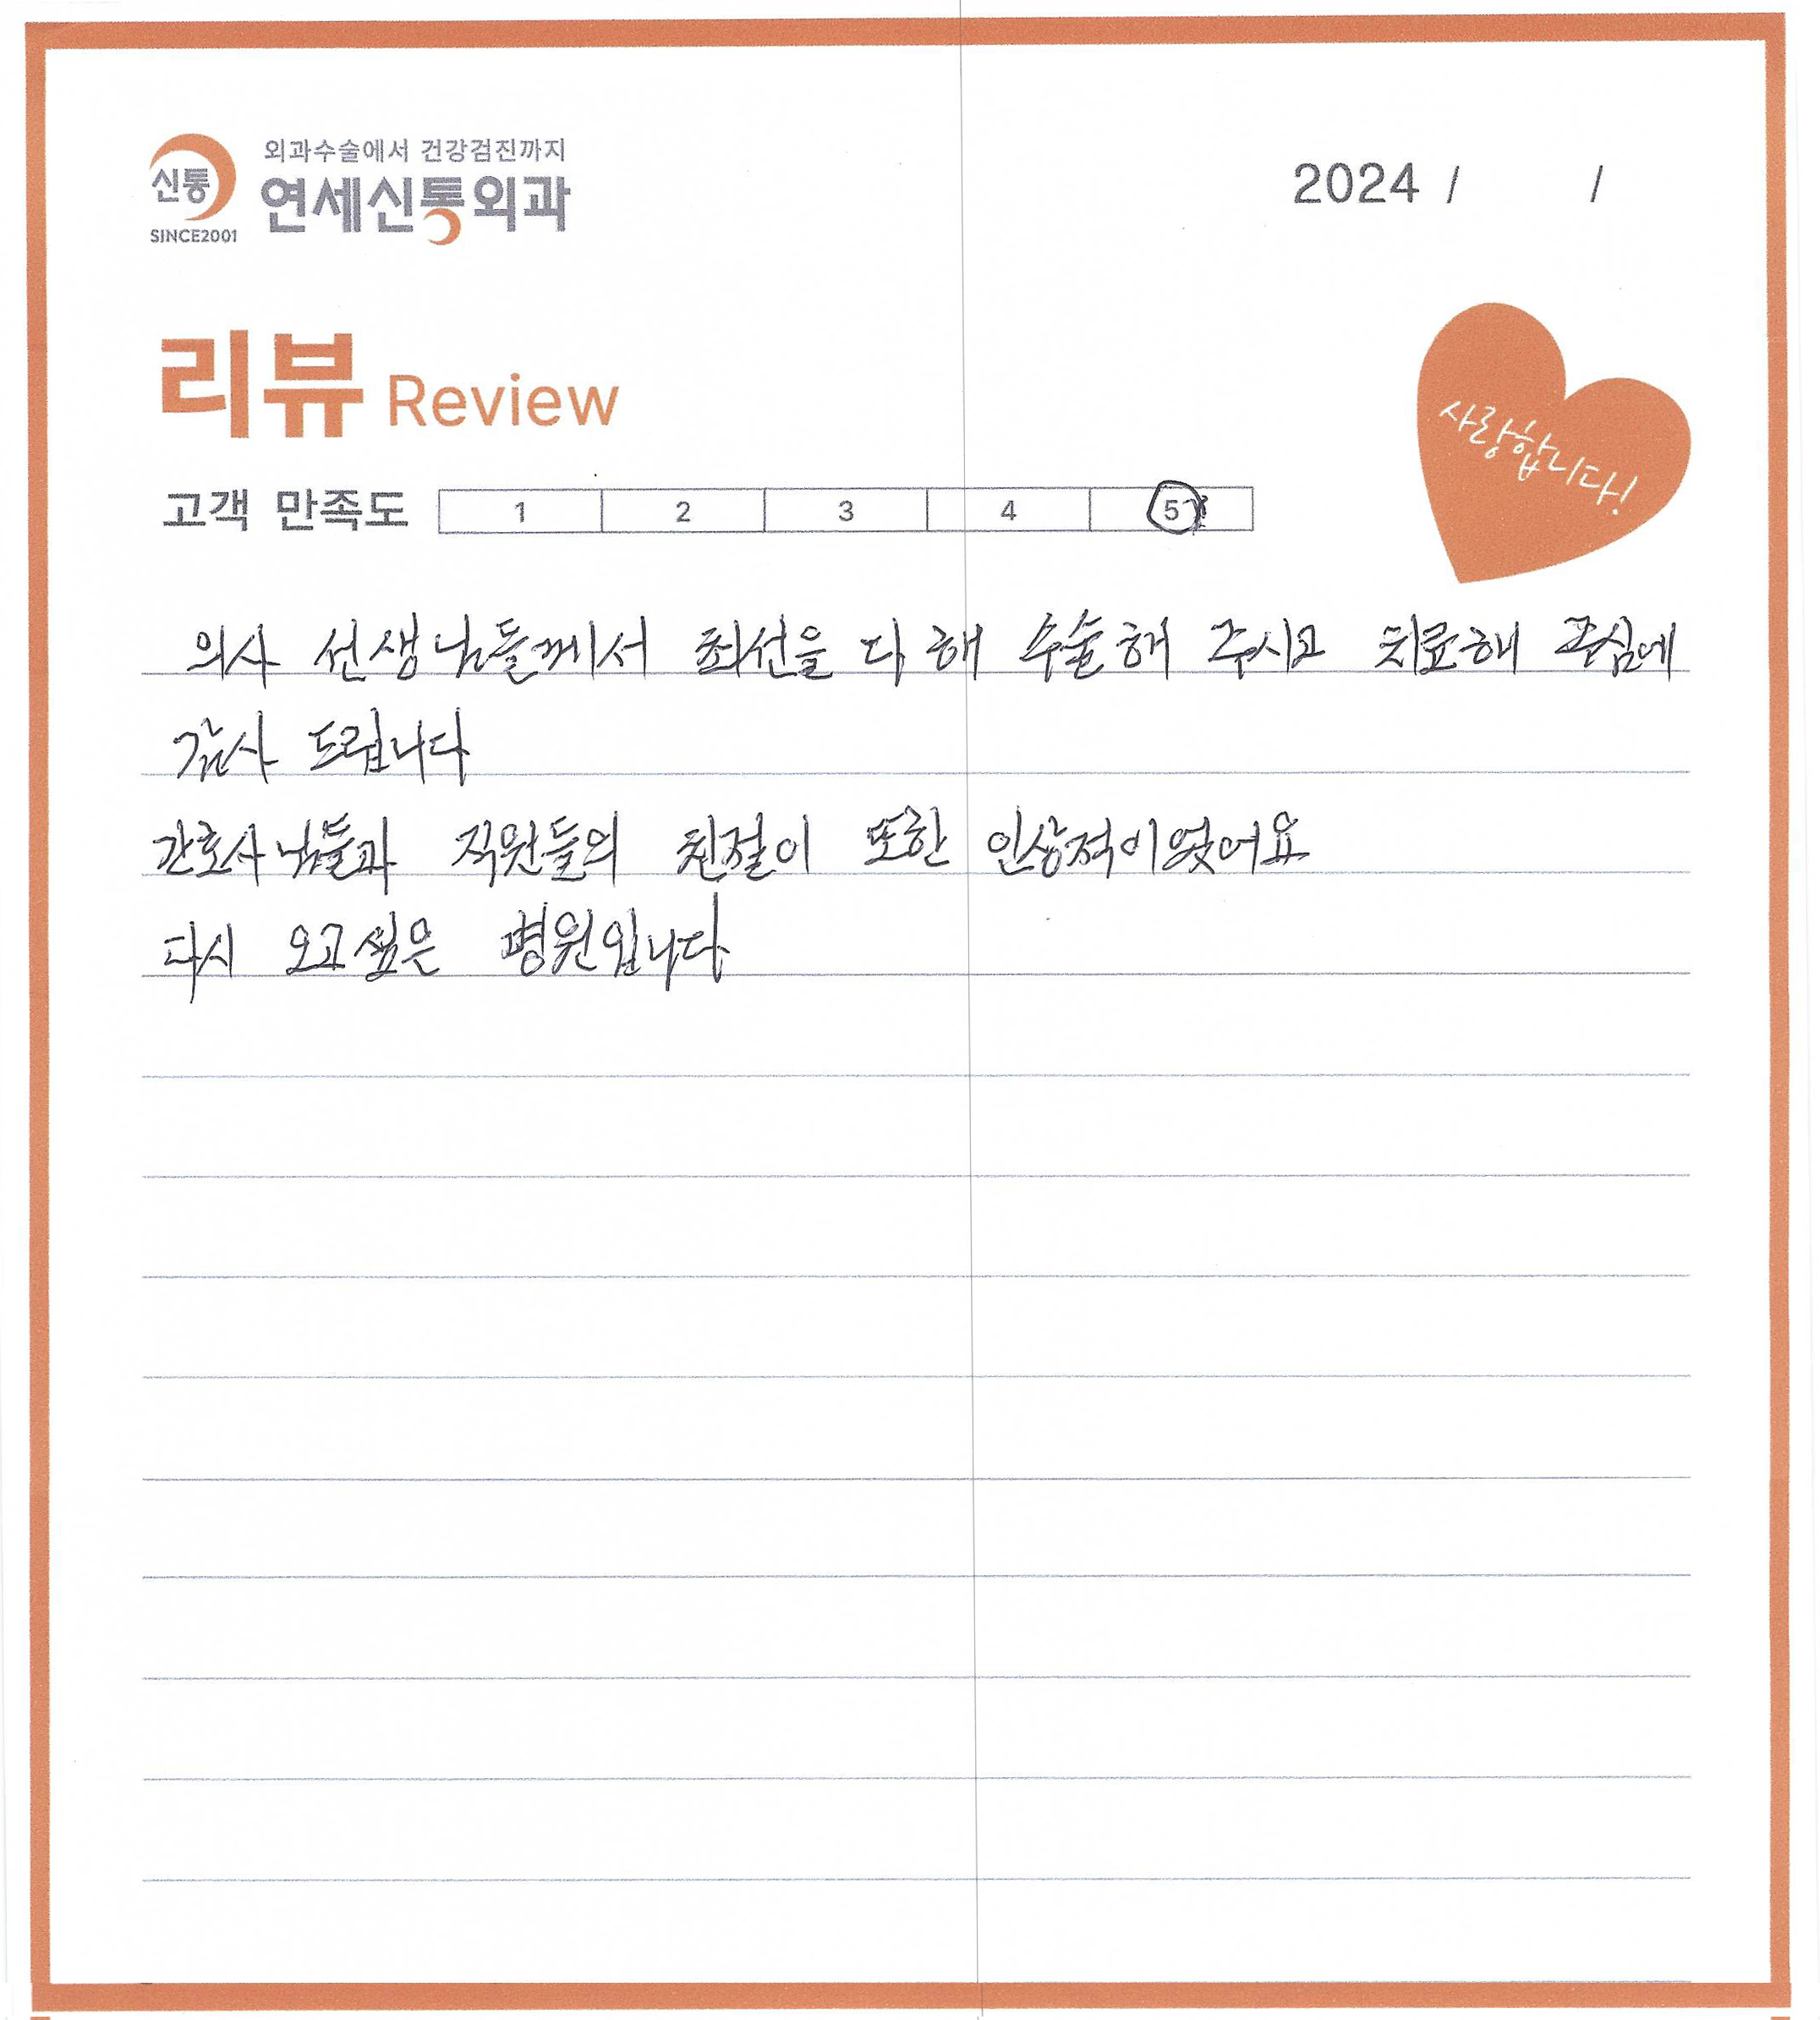 외과수술에서 건강검진까지
신통 연세신통외과
SINCE2001
2024 / /
리뷰 Review
사랑합니다!
고객 만족도 1 2 3 4 5
의사 선생님들께서 최선을 다 해 수술해 주시고 치료해 주심에
감사 드립니다
간호사님들과 직원들의 친절이 또한 인상적이었어요
다시 오고싶은 병원입니다